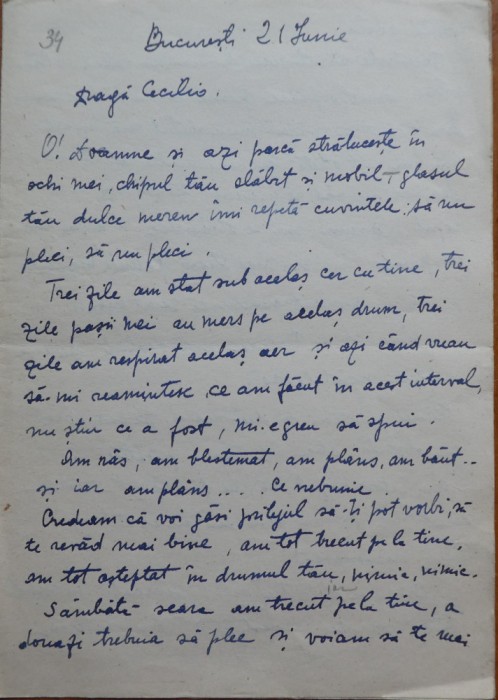 34
București 21 Iunie
Dragă Cecilio.
O! Doamne și azi parcă strălucește în
ochi mei, chipul tău slăbit și mobil – glasul
tău dulce mereu îmi repetă cuvintele: să nu
pleci, să nu pleci.
Trei zile am stat sub acelaș cer cu tine, trei
zile pașii mei au mers pe acelaș drum, trei
zile am respirat acelaș aer și azi când vreau
să-mi reamintesc ce am făcut în acest interval,
nu știu ce a fost, mi-e greu să spui.
Am râs, am blestemat, am plâns, am băut..
și iar am plâns.... Ce nebunie
Credeam că voi găsi prilejul să-ți pot vorbi, să
te revăd mai bine, am tot trecut pe la tine,
am tot așteptat în drumul tău, nimic, nimic.
Sâmbătă seara am trecut iar pe la tine, a
douazi trebuia să plec și voiam să te mai